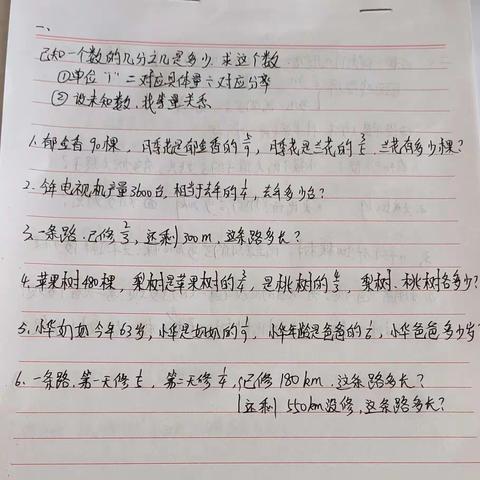 一、
已知一个数的几分之几是多少,求这个数
①单位"1"=对应具体量÷对应分率
②设未知数,找等量关系
1.郁金香90棵,月季花是郁金香的5/9,月季花是兰花的3/5,兰花有多少棵?
2.今年电视机产量3600台,相当去年的1/4,去年多少台?
3.一条路,已修2/3,还剩300m,这条路多长?
4.苹果树480棵,梨树是苹果树的3/4,是桃树的4/5,梨树、桃树各多少?
5.小华奶奶今年63岁,小华是奶奶的1/9,小华年龄是爸爸的1/6,小华爸爸多少岁
6.一条路,第一天修1/5,第二天修1/4,已修180km,这条路多长?
还剩550km没修,这条路多长?